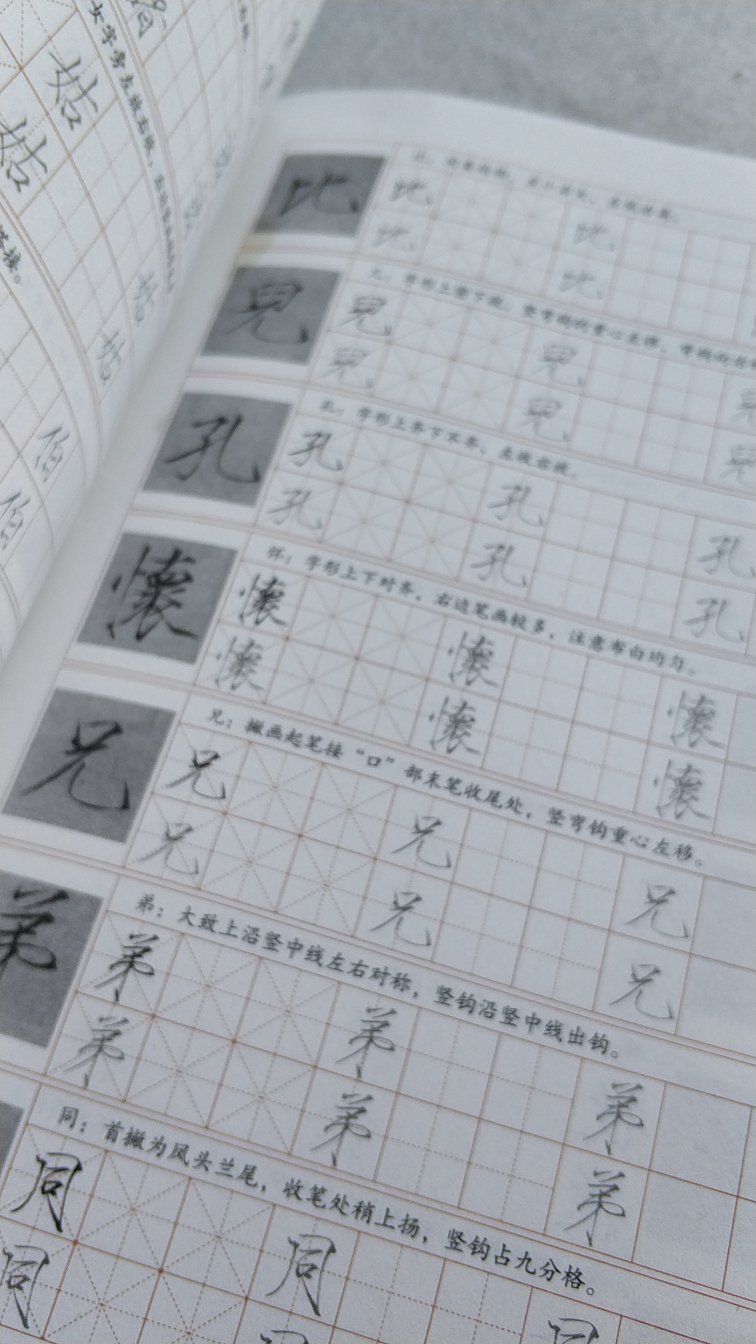 姑
姑
女字旁左放右收，
接。
佰
佰
比 比 比
比 比
兒：字形上紧下疏，竖弯钩的重心左移，
兒 兒 兒 兒
兒 兒 兒
孔：字形上齐下不齐，左收右放。
孔 孔 孔 孔
孔 孔 孔
怀：字形上下对齐，右边笔画较多，注意布白均匀。
懷 懷 懷 懷
懷 懷 懷
兄：撇画起笔接“口”部末笔收尾处，竖弯钩重心左移。
兄 兄 兄 兄
兄 兄 兄
弟：大致上沿竖中线左右对称，竖钩沿竖中线出钩。
弟 弟 弟 弟
弟 弟 弟
同：首撇为凤头兰尾，收笔处稍上扬，竖钩占九分格。
同 同 同
同 同